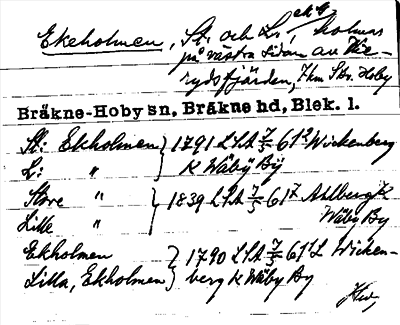 Ekeholmen, St. och L., ekh holmar
på västra sidan av Vie-
rydsfjärden, 7 km SSv. Hoby
Bräkne-Hoby sn, Bräkne hd, Blek. l.
St: Ekholmen } 1791 LSA 7/5 61² Wickenberg
L: " K Wåby By
Store " } 1839 LSA 7/5 61⁷ Ahlberg K
Lille " Wåby By
Ekholmen } 1790 LSA 7/5 61¹ L Wicken-
Lilla, Ekholmen berg K Wåby By